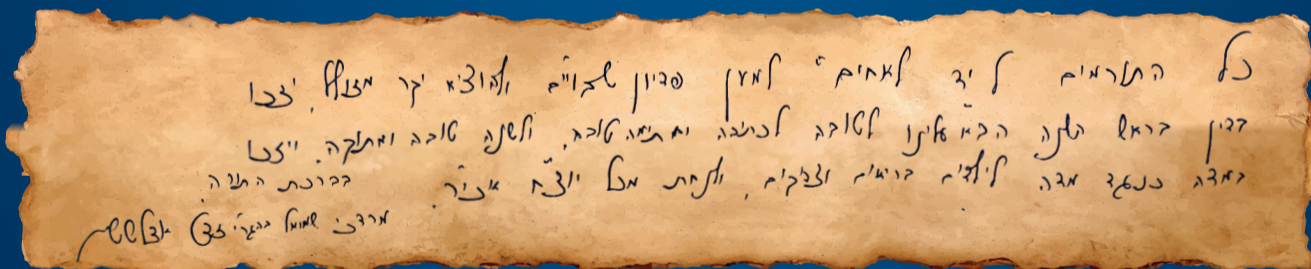 כל התורמים ל"יד לאחים" למען פדיון שבויים ולהוציא יקר מזולל, יזכו
בדין בראש השנה הבא עלינו לטובה לכתיבה וחתימה טובה, ולשנה טובה ומתוקה. ויזכו
במדה כנגד מדה לילדים בריאים וצדיקים, ולנחת מכל יוצ"ח אכי"ר.
בברכת התורה,
מרדכי שמואל